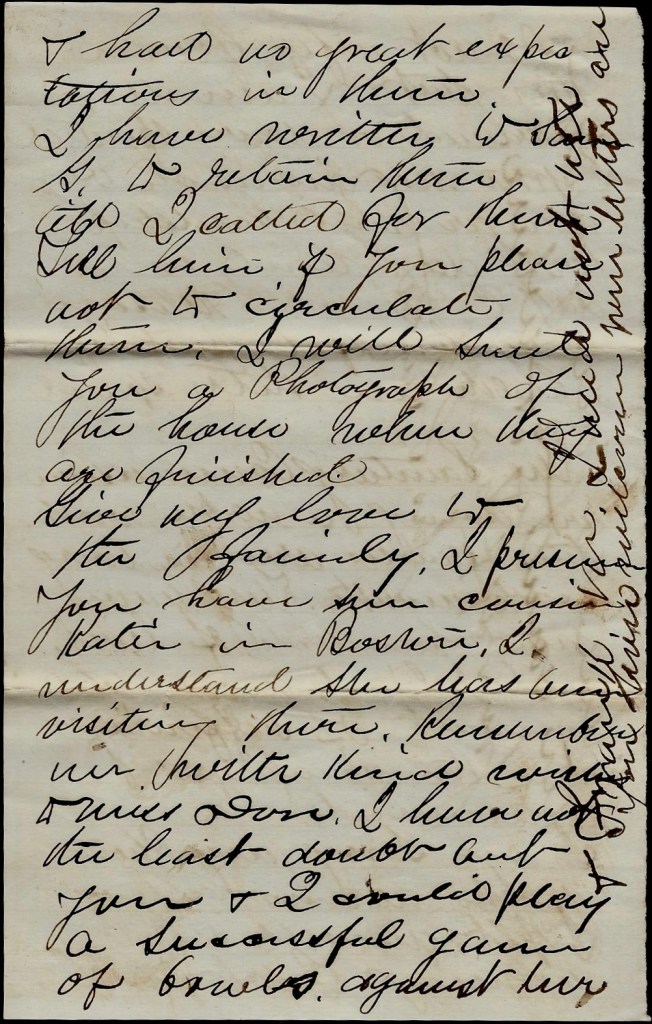 & had no great expec
tations in them.
I have written to Sam
G. to retain them
till I called for them
Tell him if you please
not to circulate
them. I will send
you a Photograph of
the house when they
are finished.
Give my love to
the family, I presume
you have seen cousin
Katie in Boston, I
understand she has been
visiting there. Remember
me with kind wishes
to miss Dow. I have not
the least doubt but
you & I could play
a successful game
of bowls, against her
& Frank
You know new letters are